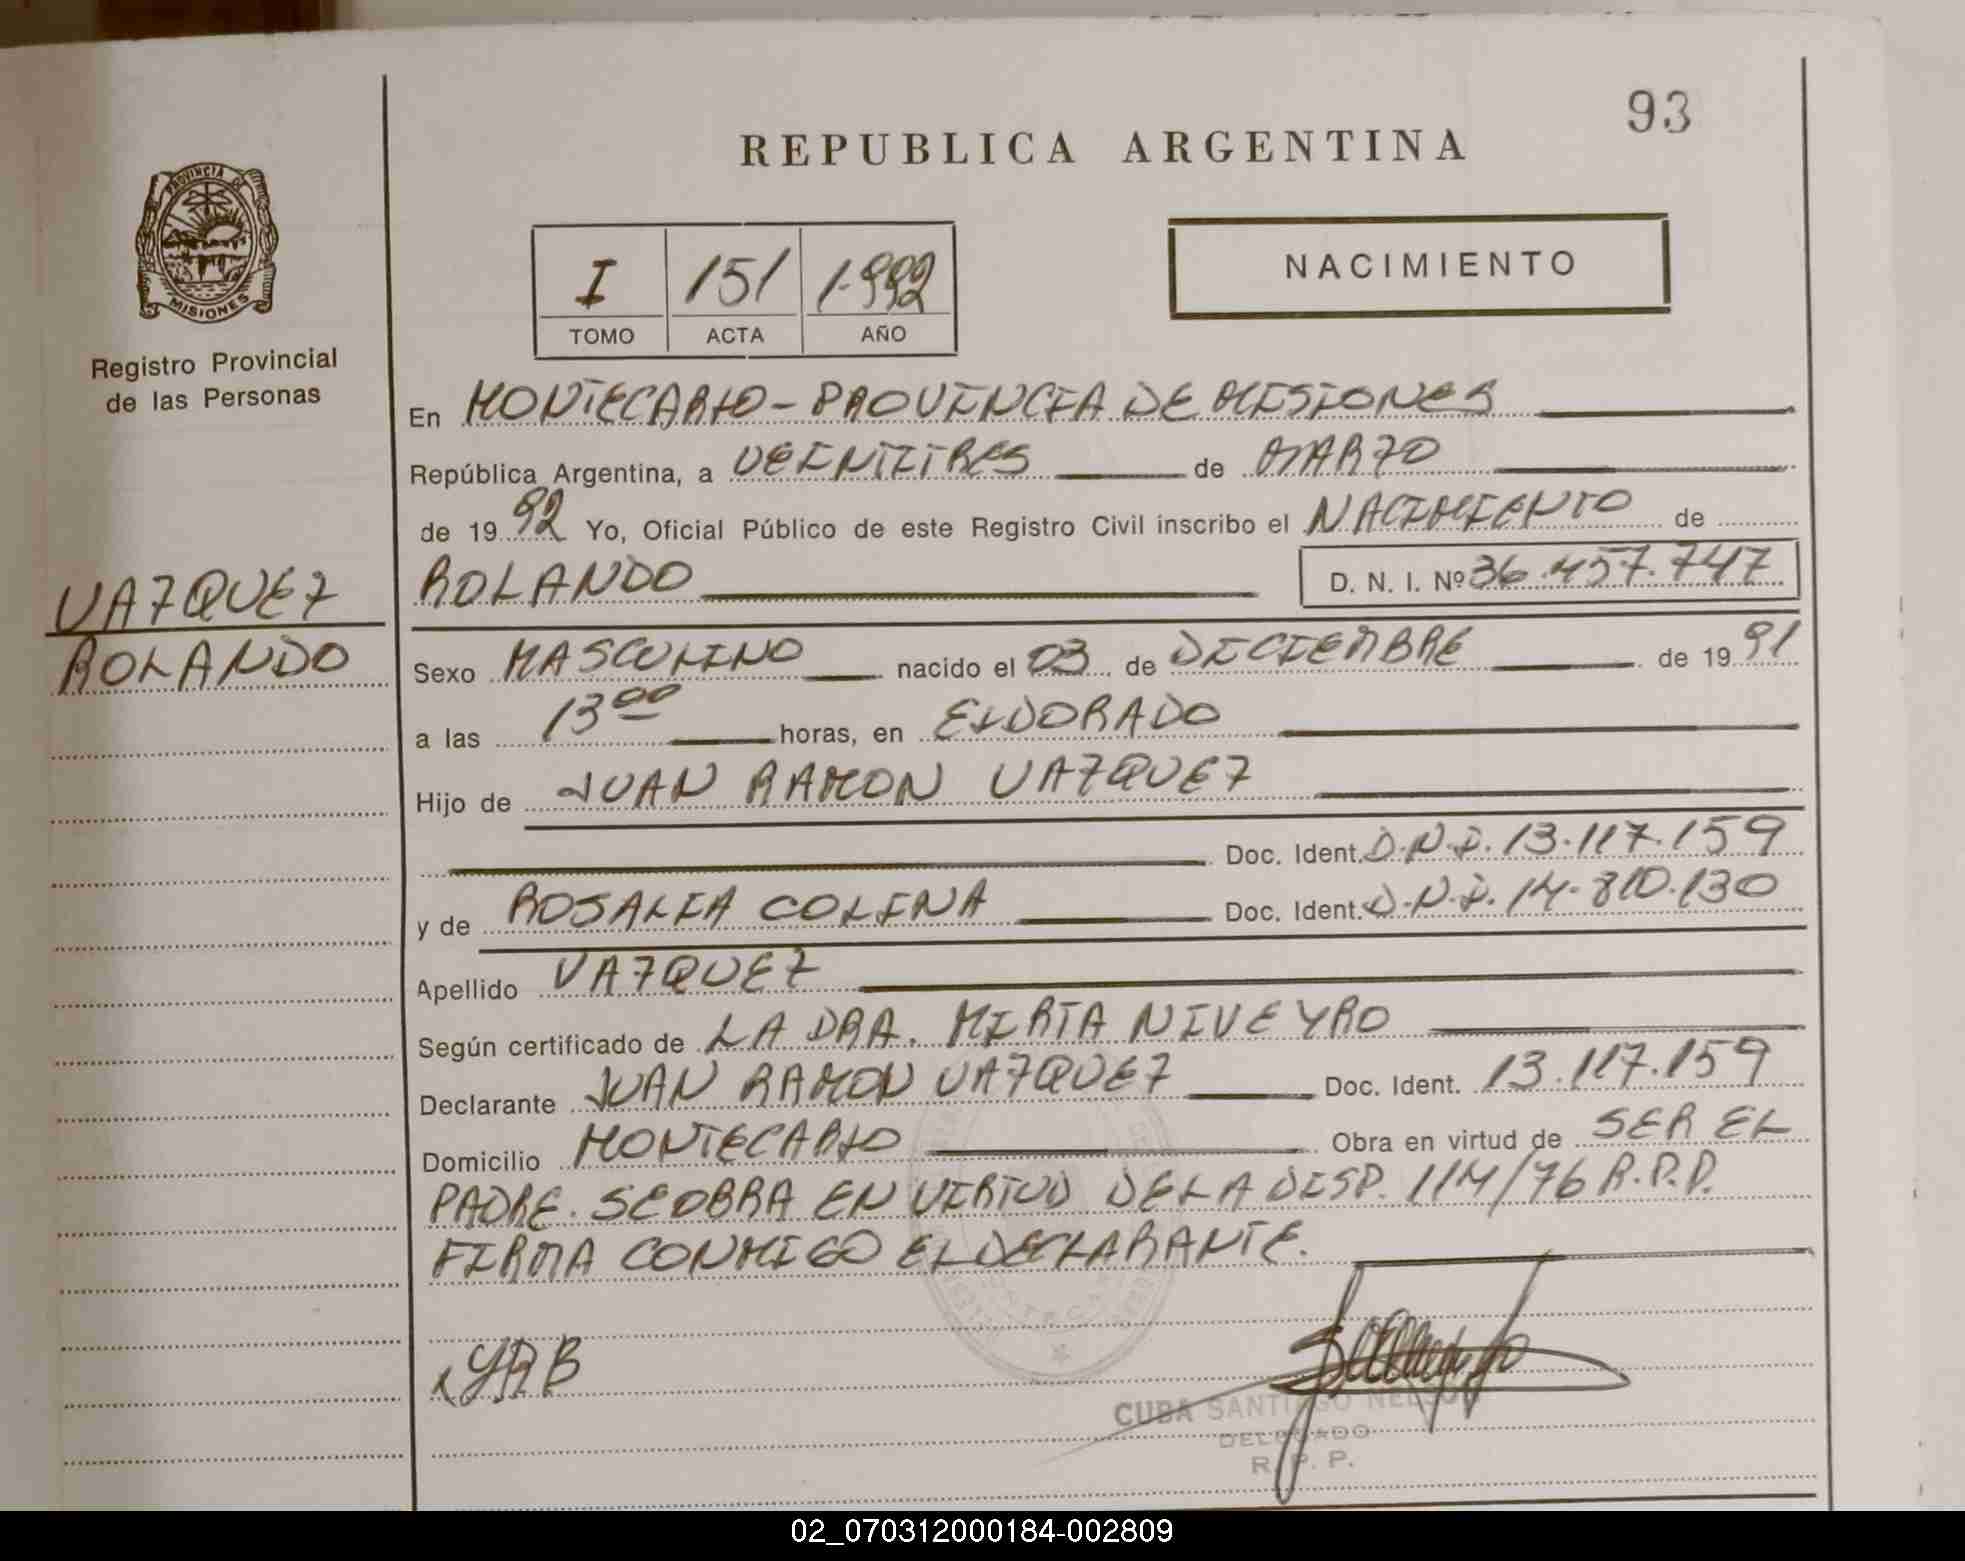 93
REPUBLICA ARGENTINA
PROVINCIA DE
MISIONES
Registro Provincial
de las Personas
NACIMIENTO
I 151 1.992
TOMO ACTA AÑO
En MONTECARLO - PROVINCIA DE MISIONES
República Argentina, a VEINTITRES de MARZO
de 19 92 Yo, Oficial Público de este Registro Civil inscribo el NACIMIENTO de
VAZQUEZ
ROLANDO
ROLANDO D. N. I. Nº 36.457.747
Sexo MASCULINO nacido el 03 de DICIEMBRE de 19 91
a las 13 00 horas, en ELDORADO
Hijo de JUAN RAMON VAZQUEZ
Doc. Ident. D.N.I. 13.117.159
y de ROSALIA COLINA Doc. Ident. D.N.I. 14.810.130
Apellido VAZQUEZ
Según certificado de LA DRA. MIRTA NIVEYRO
Declarante JUAN RAMON VAZQUEZ Doc. Ident. 13.117.159
Domicilio MONTECARLO Obra en virtud de SER EL
PADRE. SE OBRA EN VIRTUD DE LA DISP. 114/76 R.P.P.
FIRMA CONMIGO EL DECLARANTE.
CUBA SANTIAGO NELSON
DELEGADO
R. P. P.
02_070312000184-002809